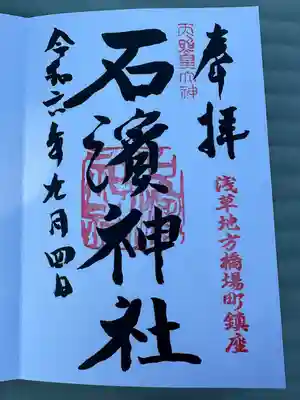 奉拝
浅草地方橋場町鎮座
天照皇大神
石濱神社
令和六年九月四日